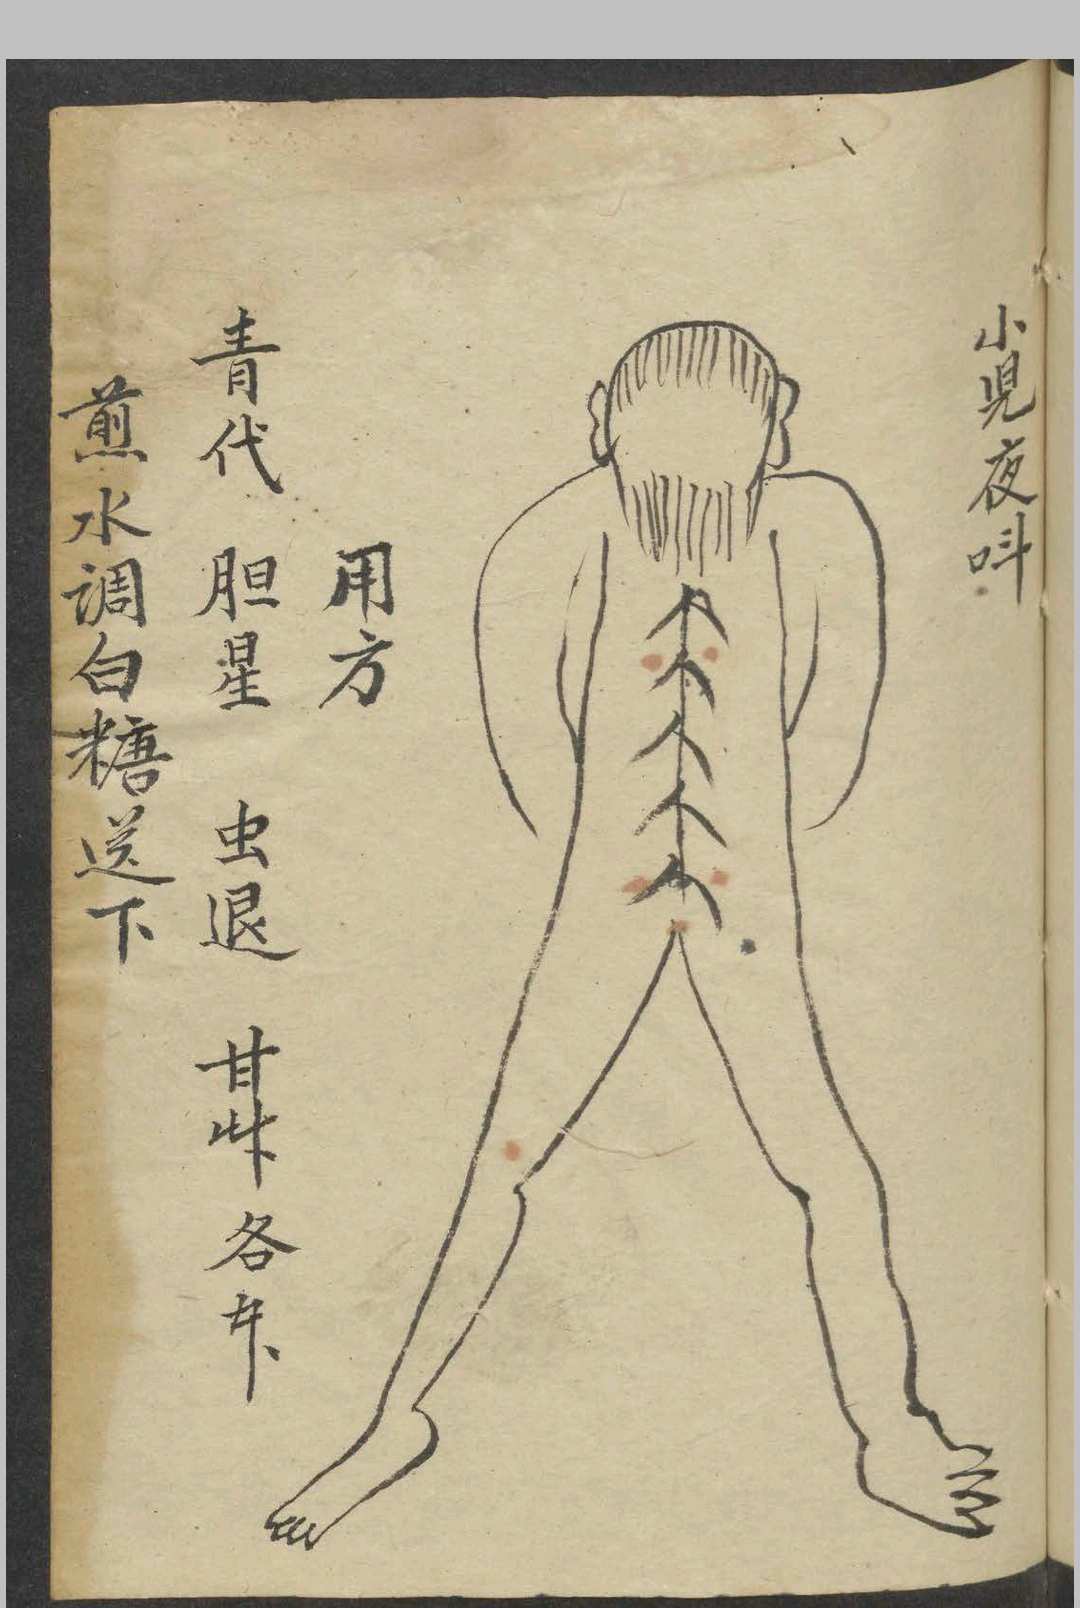 小児夜呌
用方
青代 胆星 虫退 甘艸 各
煎水调白糖送下